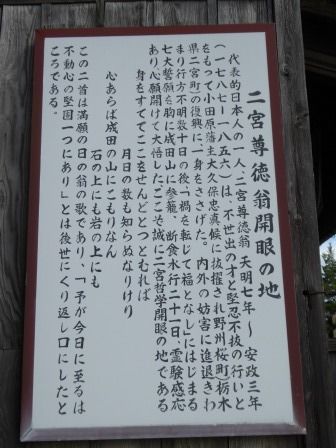 二宮尊徳翁開眼の地
代表的日本人の一人、二宮尊徳翁 天明七年〜安政三年
(一七八七〜一八五六)は、不世出の才と堅忍不抜の行いと
をもって小田原藩主大久保忠真候に抜擢され野州桜町(栃木
県二宮町)の復興に一身をささげた。内外の妨害に進退きわ
まり行方不明数十日の後、「禍を転じて福となし」にはじまる
七大誓願を胸に成田山に参籠、断食水行二十一日、霊験感応
あり心願開けて大悟した。ここそ誠に二宮哲学開眼の地である
身をすててここをせんどとつとむれば
月日の数も知らぬなりけり
心あらば成田の山にこもりなん
石の上にも岩の上にも
この二首は満願の日の首の歌であり、「予が今日に至るは
不動心の堅固一つにあり」とは後世にくり返し口にしたと
ころである。